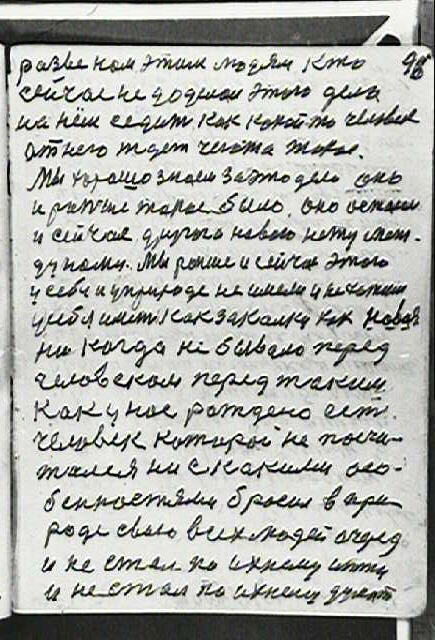 98
разве нам этим людям кто
сейчас не доделал этого дела
на нём сидит как какой то человек
от него ждет чегота такое.
Мы хорошо знаем за это дело оно
и раньше такое было, оно
и сейчас другого нового нету
Мы раньше и сейчас этого
у себя и у природе не имели и не хотим
у себя иметь как закалку как новая
ни когда не бывало перед
человеком перед таким
как у нас рождено ест.
человек которой не посчи-
тался ни с какими осо-
бенностями бросил в при-
роде свою всех людей очеред
и не стал по ихнему итти
и не стал по ихнему думат